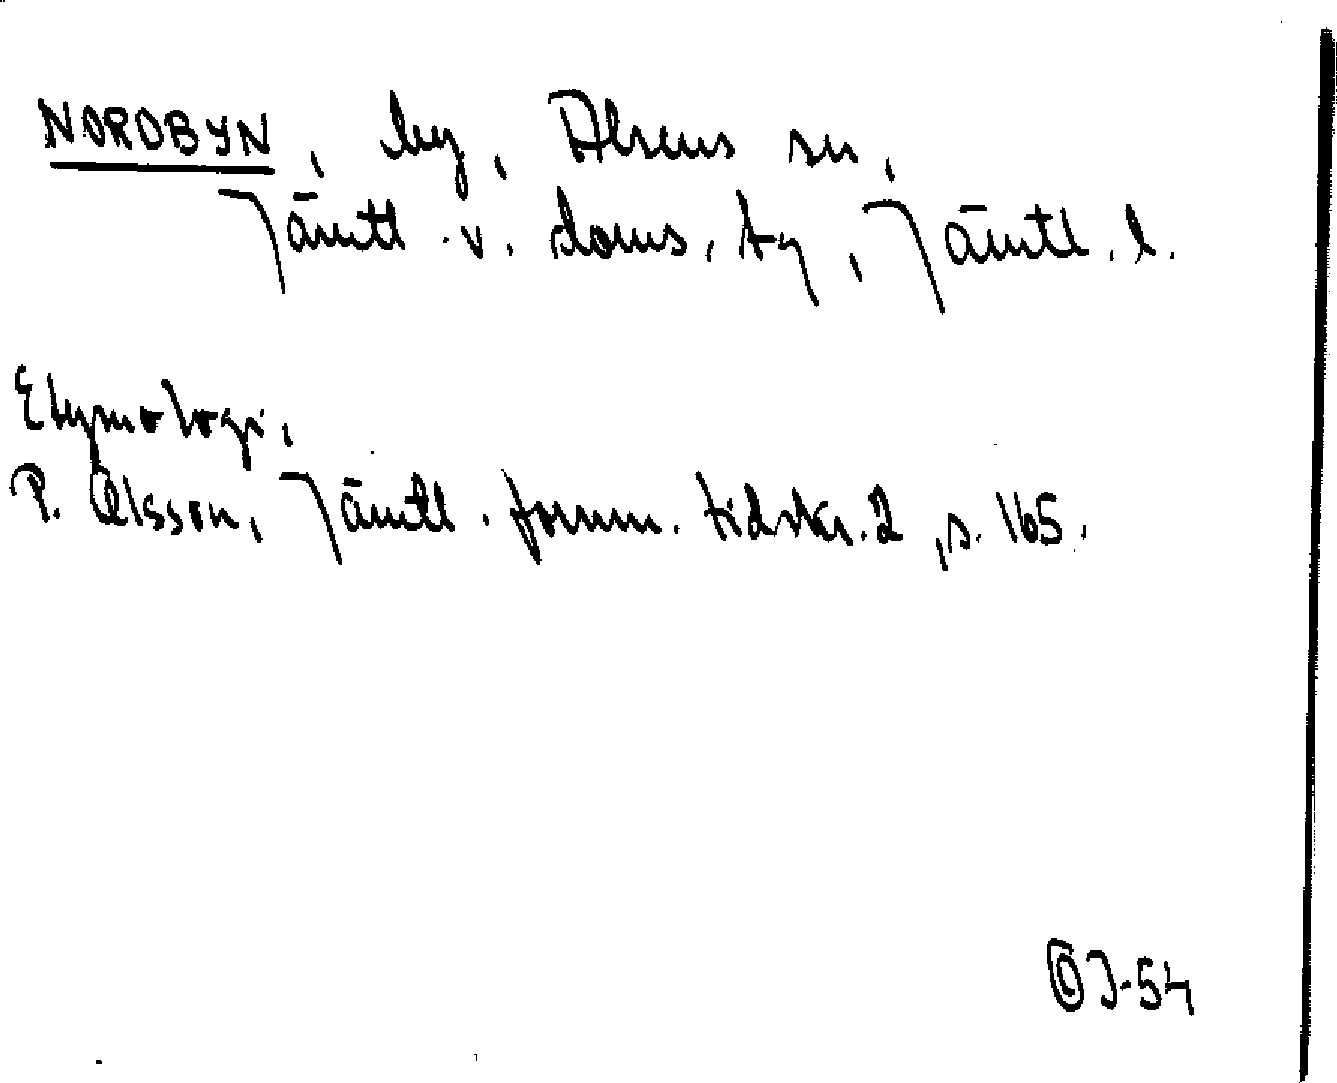 NORDBYN, by, Alsens sn,
Jämtl. v. doms. tg, Jämtl. l.
Etymologi,
P. Olsson, Jämtl. fornm. tidskr. 2, s. 165.
OJ-54